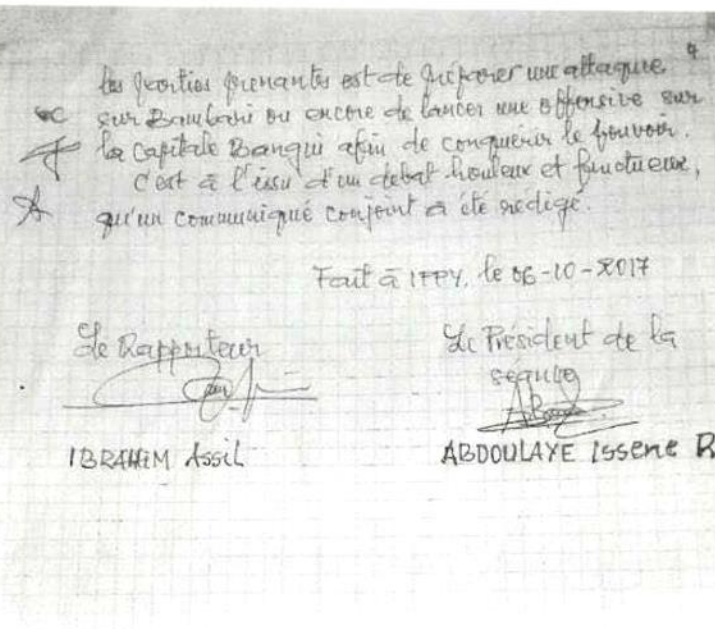 4
les parties prenantes est de préparer une attaque
sur Bambari ou encore de lancer une offensive sur
la Capitale Bangui afin de conquérir le pouvoir.
C'est à l'issu d'un debat houleux et fructueux,
qu'un communiqué conjoint a été rédigé.
Fait à IPPY, le 06-10-2017
Le Rapporteur
Le Président de la
séance
IBRAHIM Assil
ABDOULAYE Issene R